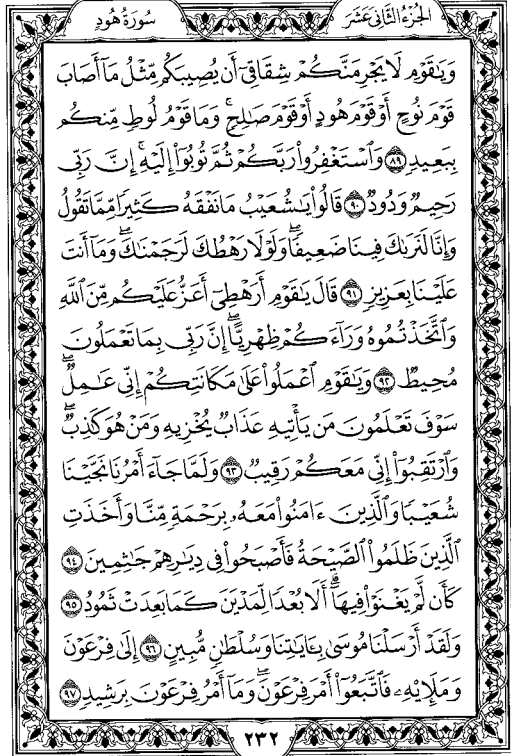 سُورَةُ هُودٍ
الجُزْءُ الثَّانِي عَشَرَ
وَيَٰقَوْمِ لَا يَجْرِمَنَّكُمْ شِقَاقِىٓ أَن يُصِيبَكُم مِّثْلُ مَآ أَصَابَ
قَوْمَ نُوحٍ أَوْ قَوْمَ هُودٍ أَوْ قَوْمَ صَٰلِحٍ ۚ وَمَا قَوْمُ لُوطٍ مِّنكُم
بِبَعِيدٍ ٨٩ وَٱسْتَغْفِرُوا۟ رَبَّكُمْ ثُمَّ تُوبُوٓا۟ إِلَيْهِ ۚ إِنَّ رَبِّى
رَحِيمٌ وَدُودٌ ٩٠ قَالُوا۟ يَٰشُعَيْبُ مَا نَفْقَهُ كَثِيرًا مِّمَّا تَقُولُ
وَإِنَّا لَنَرَىٰكَ فِينَا ضَعِيفًا ۖ وَلَوْلَا رَهْطُكَ لَرَجَمْنَٰكَ ۖ وَمَآ أَنتَ
عَلَيْنَا بِعَزِيزٍ ٩١ قَالَ يَٰقَوْمِ أَرَهْطِىٓ أَعَزُّ عَلَيْكُم مِّنَ ٱللَّهِ
وَٱتَّخَذْتُمُوهُ وَرَآءَكُمْ ظِهْرِيًّا ۖ إِنَّ رَبِّى بِمَا تَعْمَلُونَ
مُحِيطٌ ٩٢ وَيَٰقَوْمِ ٱعْمَلُوا۟ عَلَىٰ مَكَانَتِكُمْ إِنِّى عَٰمِلٌ ۖ
سَوْفَ تَعْلَمُونَ مَن يَأْتِيهِ عَذَابٌ يُخْزِيهِ وَمَنْ هُوَ كَٰذِبٌ ۖ
وَٱرْتَقِبُوٓا۟ إِنِّى مَعَكُمْ رَقِيبٌ ٩٣ وَلَمَّا جَآءَ أَمْرُنَا نَجَّيْنَا
شُعَيْبًا وَٱلَّذِينَ ءَامَنُوا۟ مَعَهُۥ بِرَحْمَةٍ مِّنَّا وَأَخَذَتِ
ٱلَّذِينَ ظَلَمُوا۟ ٱلصَّيْحَةُ فَأَصْبَحُوا۟ فِى دِيَٰرِهِمْ جَٰثِمِينَ ٩٤
كَأَن لَّمْ يَغْنَوْا۟ فِيهَآ ۗ أَلَا بُعْدًا لِّمَدْيَنَ كَمَا بَعِدَتْ ثَمُودُ ٩٥
وَلَقَدْ أَرْسَلْنَا مُوسَىٰ بِـَٔايَٰتِنَا وَسُلْطَٰنٍ مُّبِينٍ ٩٦ إِلَىٰ فِرْعَوْنَ
وَمَلَإِي۟هِۦ فَٱتَّبَعُوٓا۟ أَمْرَ فِرْعَوْنَ ۖ وَمَآ أَمْرُ فِرْعَوْنَ بِرَشِيدٍ ٩٧
٢٣٢